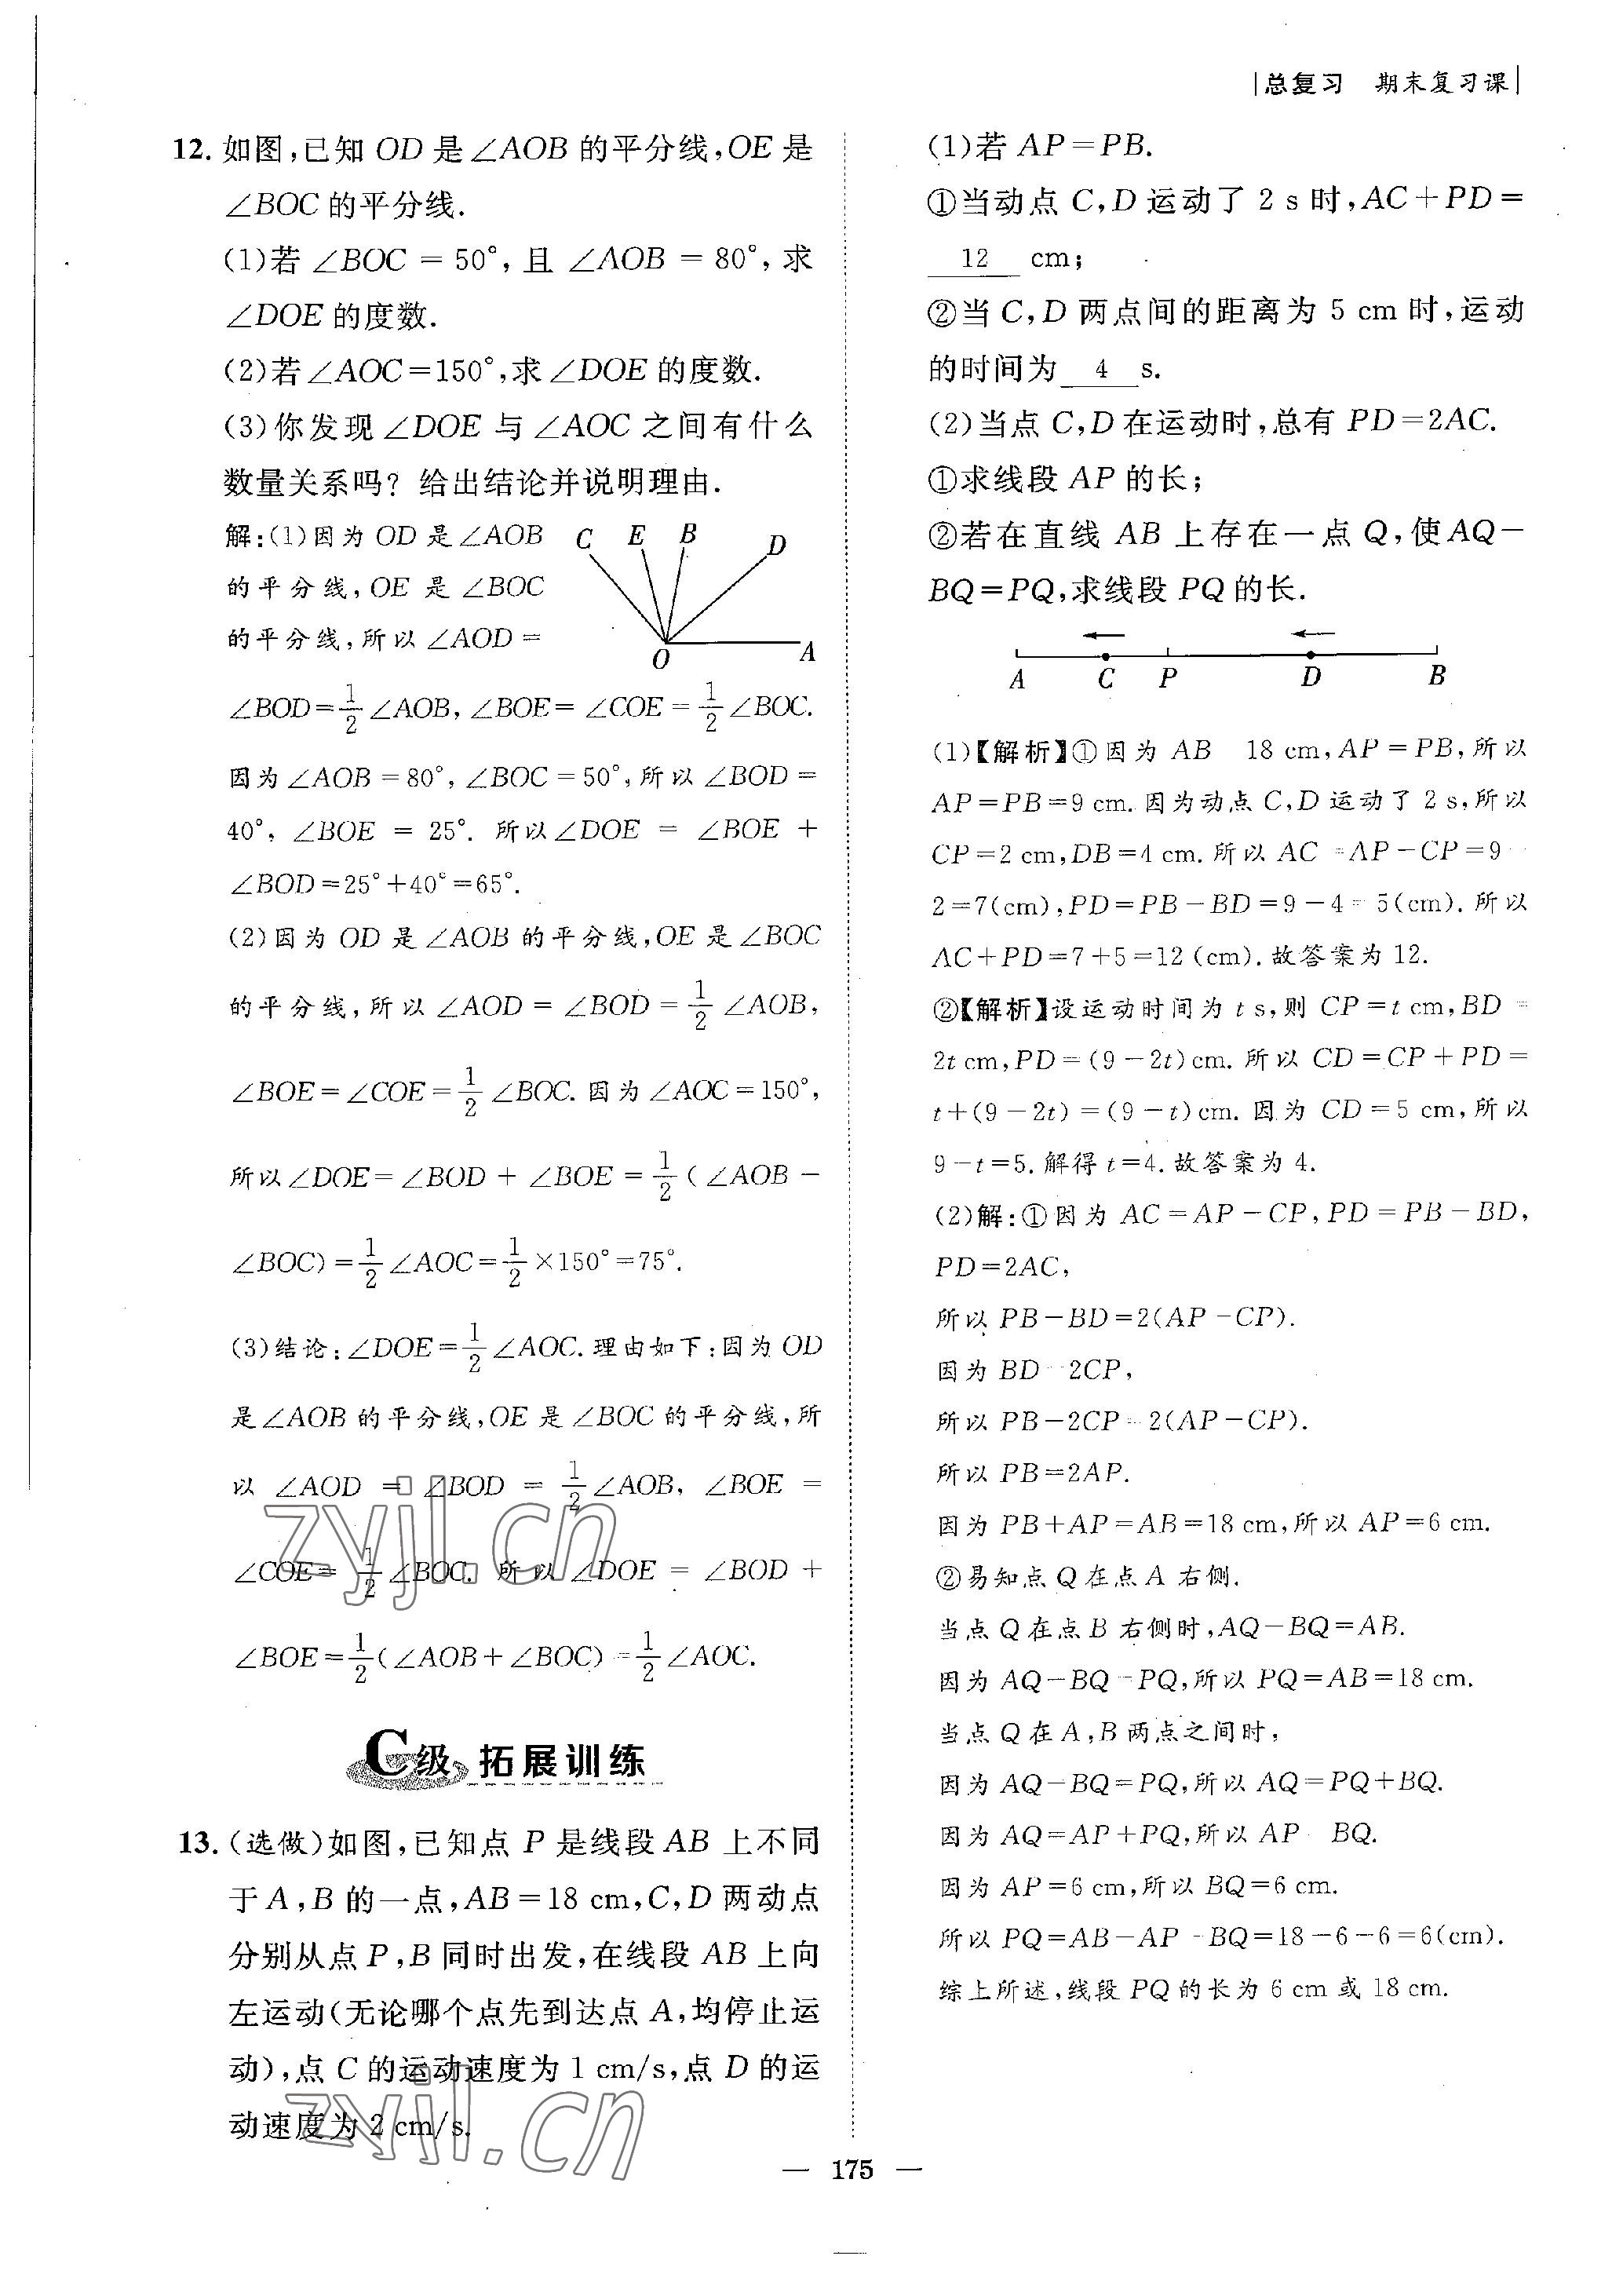 总复习 期末复习课
12. 如图,已知 OD 是∠AOB 的平分线,OE 是
∠BOC 的平分线.
(1)若 ∠BOC = 50°, 且 ∠AOB = 80°, 求
∠DOE 的度数.
(2)若∠AOC=150°,求∠DOE 的度数.
(3)你发现 ∠DOE 与 ∠AOC 之间有什么
数量关系吗? 给出结论并说明理由.
解:(1)因为 OD 是∠AOB
的平分线,OE 是∠BOC
的平分线,所以∠AOD =
C E B D
O A
∠BOD=1/2∠AOB,∠BOE=∠COE=1/2∠BOC.
因为∠AOB=80°,∠BOC=50°,所以∠BOD=
40°, ∠BOE = 25°. 所以∠DOE = ∠BOE +
∠BOD=25°+40°=65°.
(2)因为 OD 是∠AOB 的平分线,OE 是∠BOC
的平分线,所以∠AOD=∠BOD=1/2∠AOB,
∠BOE=∠COE=1/2∠BOC. 因为∠AOC=150°,
所以∠DOE=∠BOD+∠BOE=1/2(∠AOB-
∠BOC)=1/2∠AOC=1/2×150°=75°.
(3)结论:∠DOE=1/2∠AOC. 理由如下:因为 OD
是∠AOB 的平分线,OE 是∠BOC 的平分线,所
以 ∠AOD = ∠BOD = 1/2∠AOB, ∠BOE =
∠COE=1/2∠BOC. 所以∠DOE = ∠BOD +
∠BOE=1/2(∠AOB+∠BOC)=1/2∠AOC.
C级 拓展训练
13. (选做)如图,已知点 P 是线段 AB 上不同
于 A,B 的一点,AB=18 cm,C,D 两动点
分别从点 P,B 同时出发,在线段 AB 上向
左运动(无论哪个点先到达点 A,均停止运
动),点 C 的运动速度为 1 cm/s,点 D 的运
动速度为 2 cm/s.
(1)若 AP=PB.
①当动点 C,D 运动了 2 s 时,AC+PD=
12 cm;
②当 C,D 两点间的距离为 5 cm 时,运动
的时间为 4 s.
(2)当点 C,D 在运动时,总有 PD=2AC.
①求线段 AP 的长;
②若在直线 AB 上存在一点 Q,使 AQ-
BQ=PQ,求线段 PQ 的长.
A C P D B
(1)【解析】①因为 AB 18 cm,AP=PB,所以
AP=PB=9 cm. 因为动点 C,D 运动了 2 s,所以
CP=2 cm,DB=4 cm. 所以 AC=AP-CP=9-
2=7(cm),PD=PB-BD=9-4=5(cm). 所以
AC+PD=7+5=12(cm). 故答案为 12.
②【解析】设运动时间为 t s,则 CP=t cm,BD=
2t cm,PD=(9-2t)cm. 所以 CD=CP+PD=
t+(9-2t)=(9-t)cm. 因为 CD=5 cm,所以
9-t=5. 解得 t=4. 故答案为 4.
(2)解:①因为 AC=AP-CP,PD=PB-BD,
PD=2AC,
所以 PB-BD=2(AP-CP).
因为 BD 2CP,
所以 PB-2CP=2(AP-CP).
所以 PB=2AP.
因为 PB+AP=AB=18 cm,所以 AP=6 cm.
②易知点 Q 在点 A 右侧.
当点 Q 在点 B 右侧时,AQ-BQ=AB.
因为 AQ-BQ=PQ,所以 PQ=AB=18 cm.
当点 Q 在 A,B 两点之间时,
因为 AQ-BQ=PQ,所以 AQ=PQ+BQ.
因为 AQ=AP+PQ,所以 AP BQ.
因为 AP=6 cm,所以 BQ=6 cm.
所以 PQ=AB-AP-BQ=18-6-6=6(cm).
综上所述,线段 PQ 的长为 6 cm 或 18 cm.
zyjl.cn
zyjl.cn
— 175 —